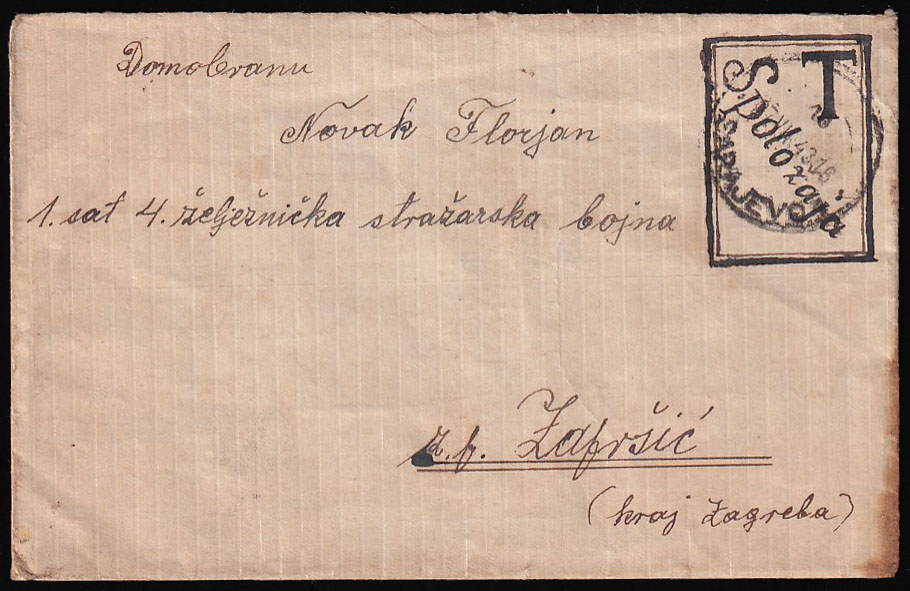 Domobranu
Novak Florjan
1. sat 4. želježnička stražarska bojna
z. p. Zapršić
(kraj Zagreba)
T
S položaja
SARAJEVO